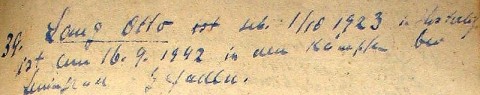 39. Lang Otto ist geb. 1/10 1923 in
ist am 16.9.1942 in den Kämpfen bei
gefallen.